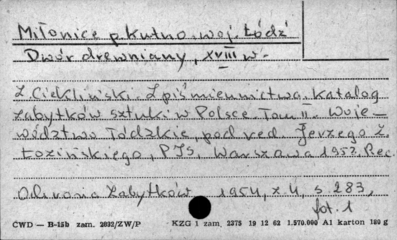 Miłonice p. Kutno, woj. Łódź
Dwór drewniany, XVIII w.
Z. Ciekliński. Z piśmiennictwa. Katalog
zabytków sztuki w Polsce. Tom II. Woje-
wództwo Łódzkie, pod red. Jerzego Z.
Łozińskiego, PIS, Warszawa 1953. Rec.
Ochrona Zabytków 1954, z. 4, s. 283,
fot. 1
ĆWD — B-15b zam. 2832/ZW/P KZG 1 zam. 2375 19 12 62 1.570.000 A1 karton 180 g